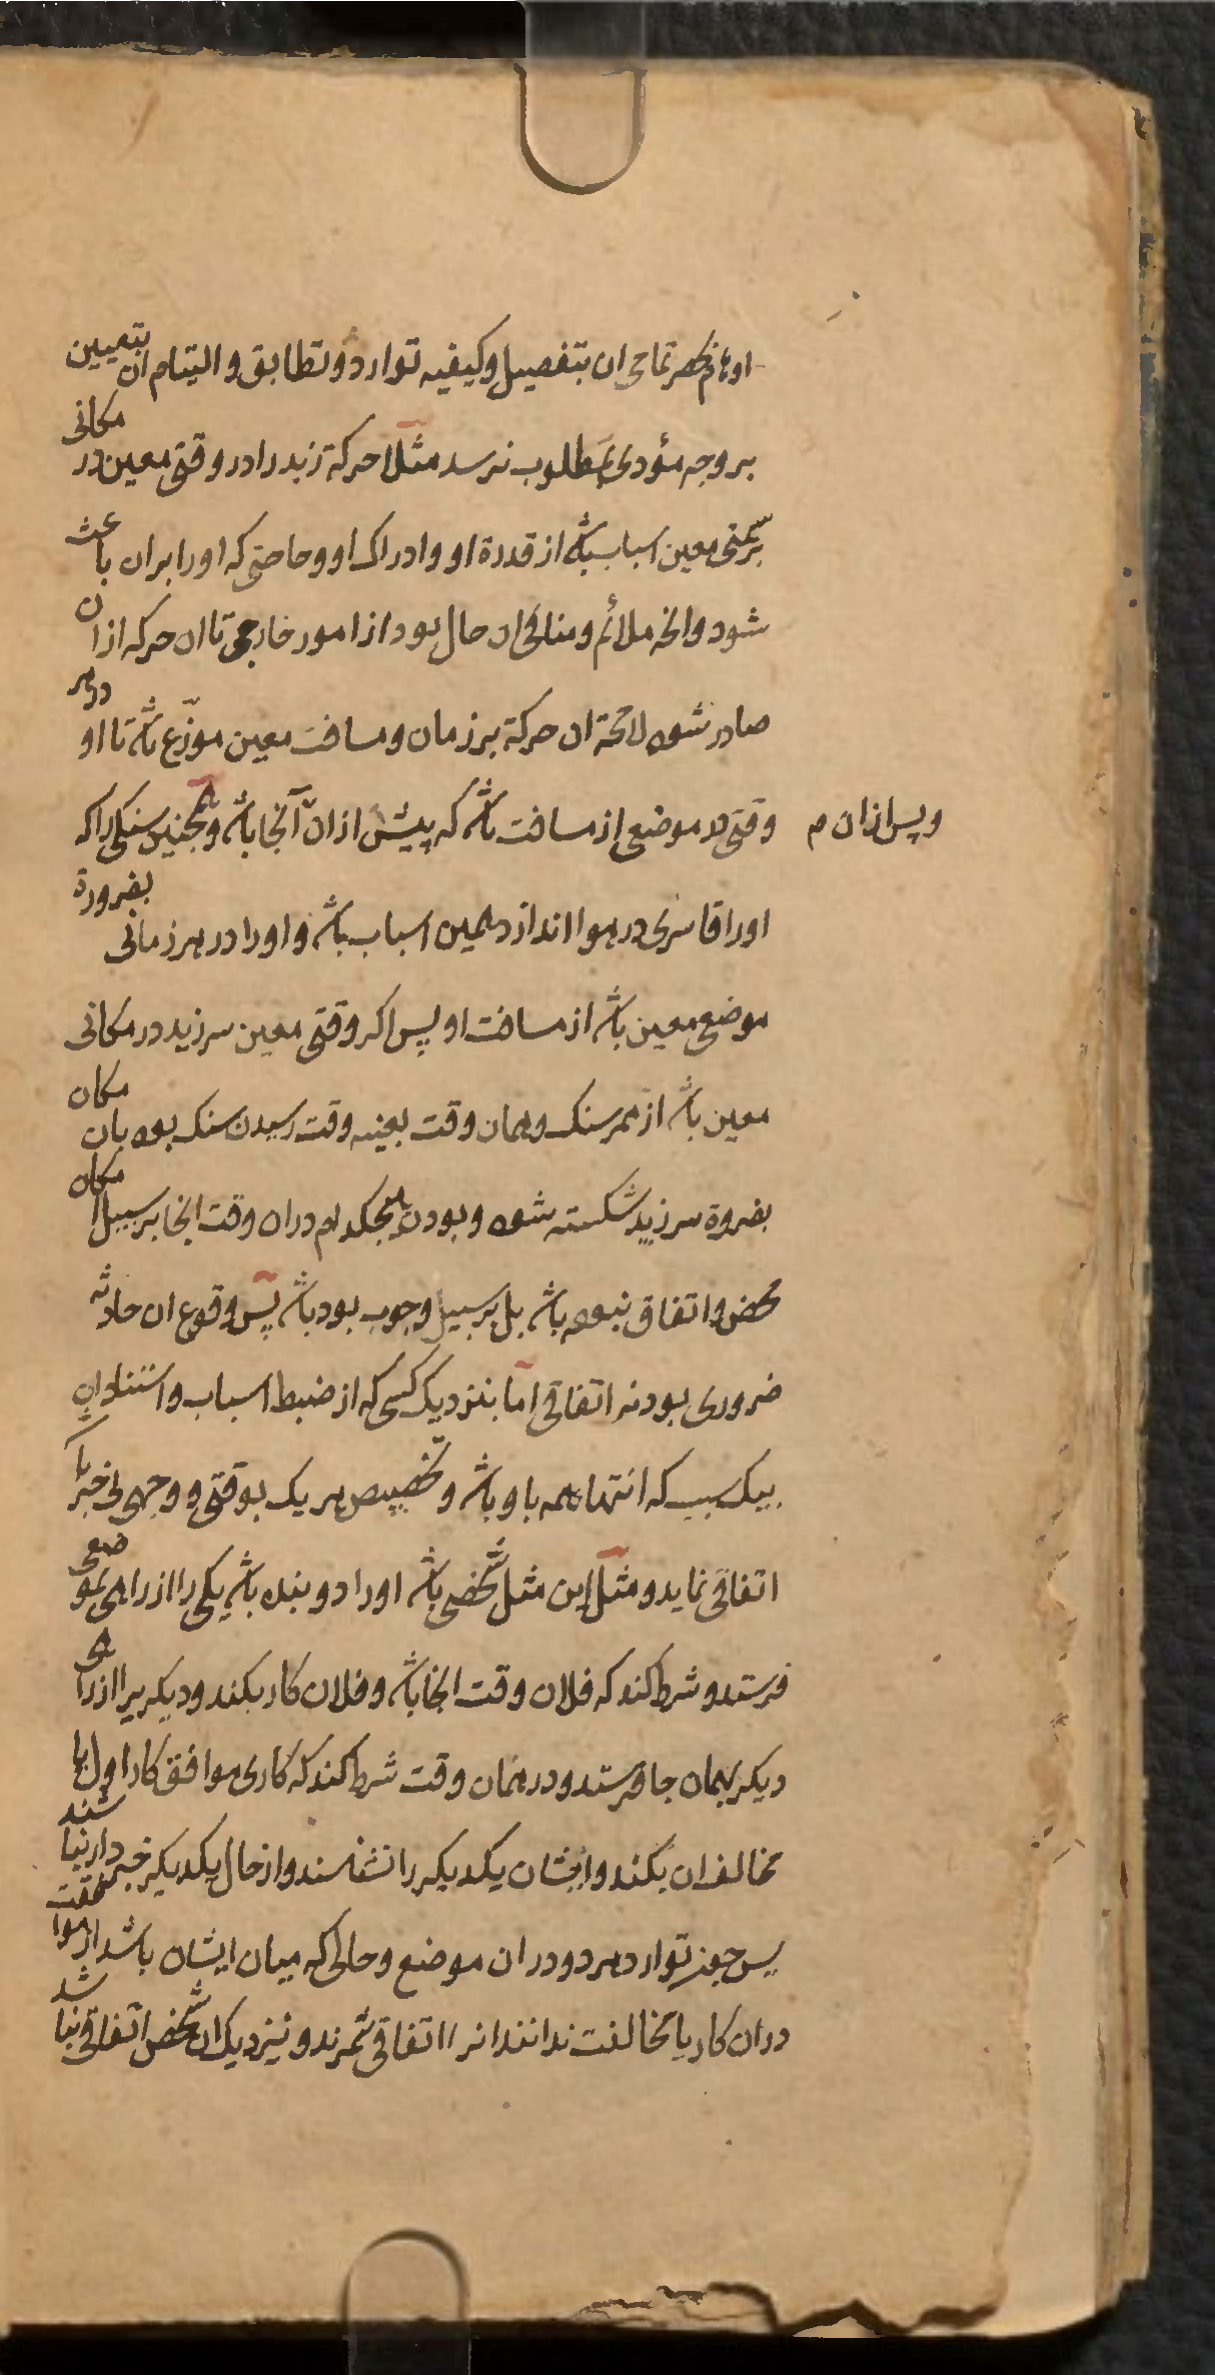 اوهام حصر تمامی ان بتفصیل و کیفیه توارد و تطابق و التیام ان بتعیین
بر وجه مؤدی بمطلوب نرسد مثلا حرکة زید را در وقتی معین در مکانی
بر سمتی معین اسباب باشد از قدرة او و ادراک او و حاجتی که اورا بران باعث
شود و انچه ملائم و منافی ان حال بود از امور خارجی تا ان حرکه ازان
صادر شود لا محة ان حرکة بر زمان و مسافت معین موزّع باشد تا او در هر
وقتی در موضعی از مسافت باشد که پیش از ان و پس ازان م آنجا باشد و همچنین سنکی را که
اورا قاسری در هوا اندازد همین اسباب باشد و اورا در هر زمانی بضرورة
موضعی معین باشد از مسافت او پس اکر وقتی معین سر زید در مکانی
معین باشد از ممر سنک و همان وقت بعینه وقت رسیدن سنک بود بان مکان
بضروة سر زید شکسته شود و بودن هیچکدام دران وقت انجا بر سبیل امکان
محض و اتفاق نبوده باشد بل بر سبیل وجوب بود باشد پس وقوع ان حادثه
ضروری بود نه اتفاقی اما بنزدیک کسی که از ضبط اسباب و استناد ان
بیک سبب که انتهاء همه باو باشد و تخصیص هر یک بوقتی و وجهی بی خبر باشد
اتفاقی نماید و مثل این مثل شخصی باشد اورا دو بنده باشد یکی را از راهی بموضعی
فرستد و شرط کند که فلان وقت انجا باشد و فلان کار بکند و دیکریرا از راهی
دیکر بهمان جا فرستد و در همان وقت شرط کند که کاری موافق کار اول یا
مخالف ان بکند و ایشان یکدیکر را نشناسند و از حال یکدیکر خبردار نباشند
پس چون توارد هر دو در ان موضع و حالی که میان ایشان باشد از موافقت
دران کار یا مخالفت ندانند انرا اتفاقی شمرند و نیزدیک ان شخص اتفاقی نباشد